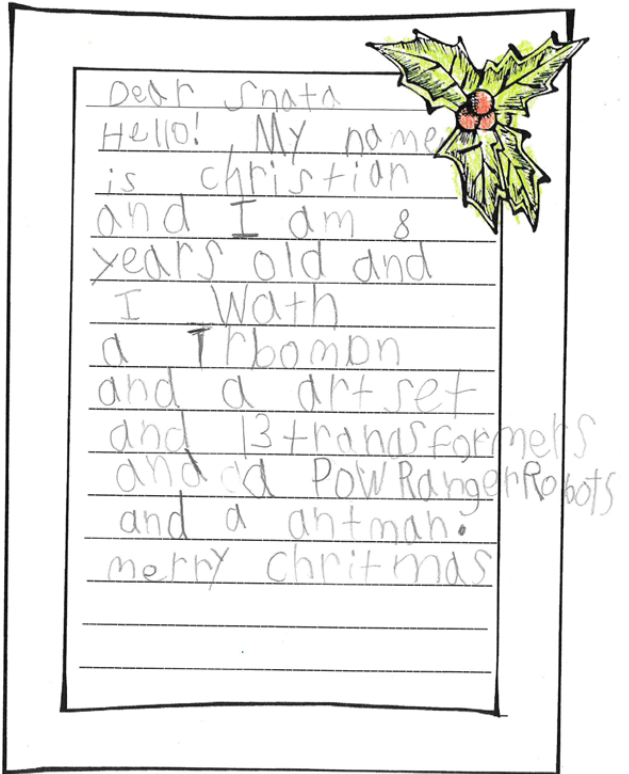 Dear Snata
Hello! My name
is christian
and I am 8
years old and
I wath
a Trbomon
and a art set
and 13 transformers
and a PowRangerRobots
and a antman.
merry chritmas